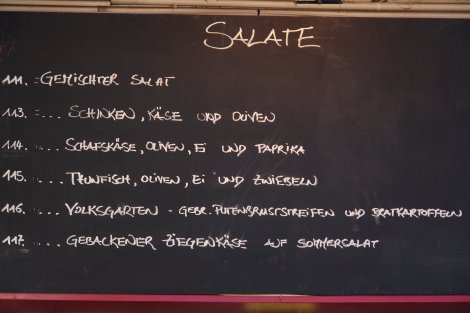 SALATE
111. GEMISCHTER SALAT
113. ... SCHINKEN, KÄSE UND OLIVEN
114. ... SCHAFSKÄSE, OLIVEN, EI UND PAPRIKA
115. ... THUNFISCH, OLIVEN, EI UND ZWIEBELN
116. ... VOLKSGARTEN - GEBR. PUTENBRUSTSTREIFEN UND BRATKARTOFFELN
117. ... GEBACKENER ZIEGENKÄSE AUF SOMMERSALAT